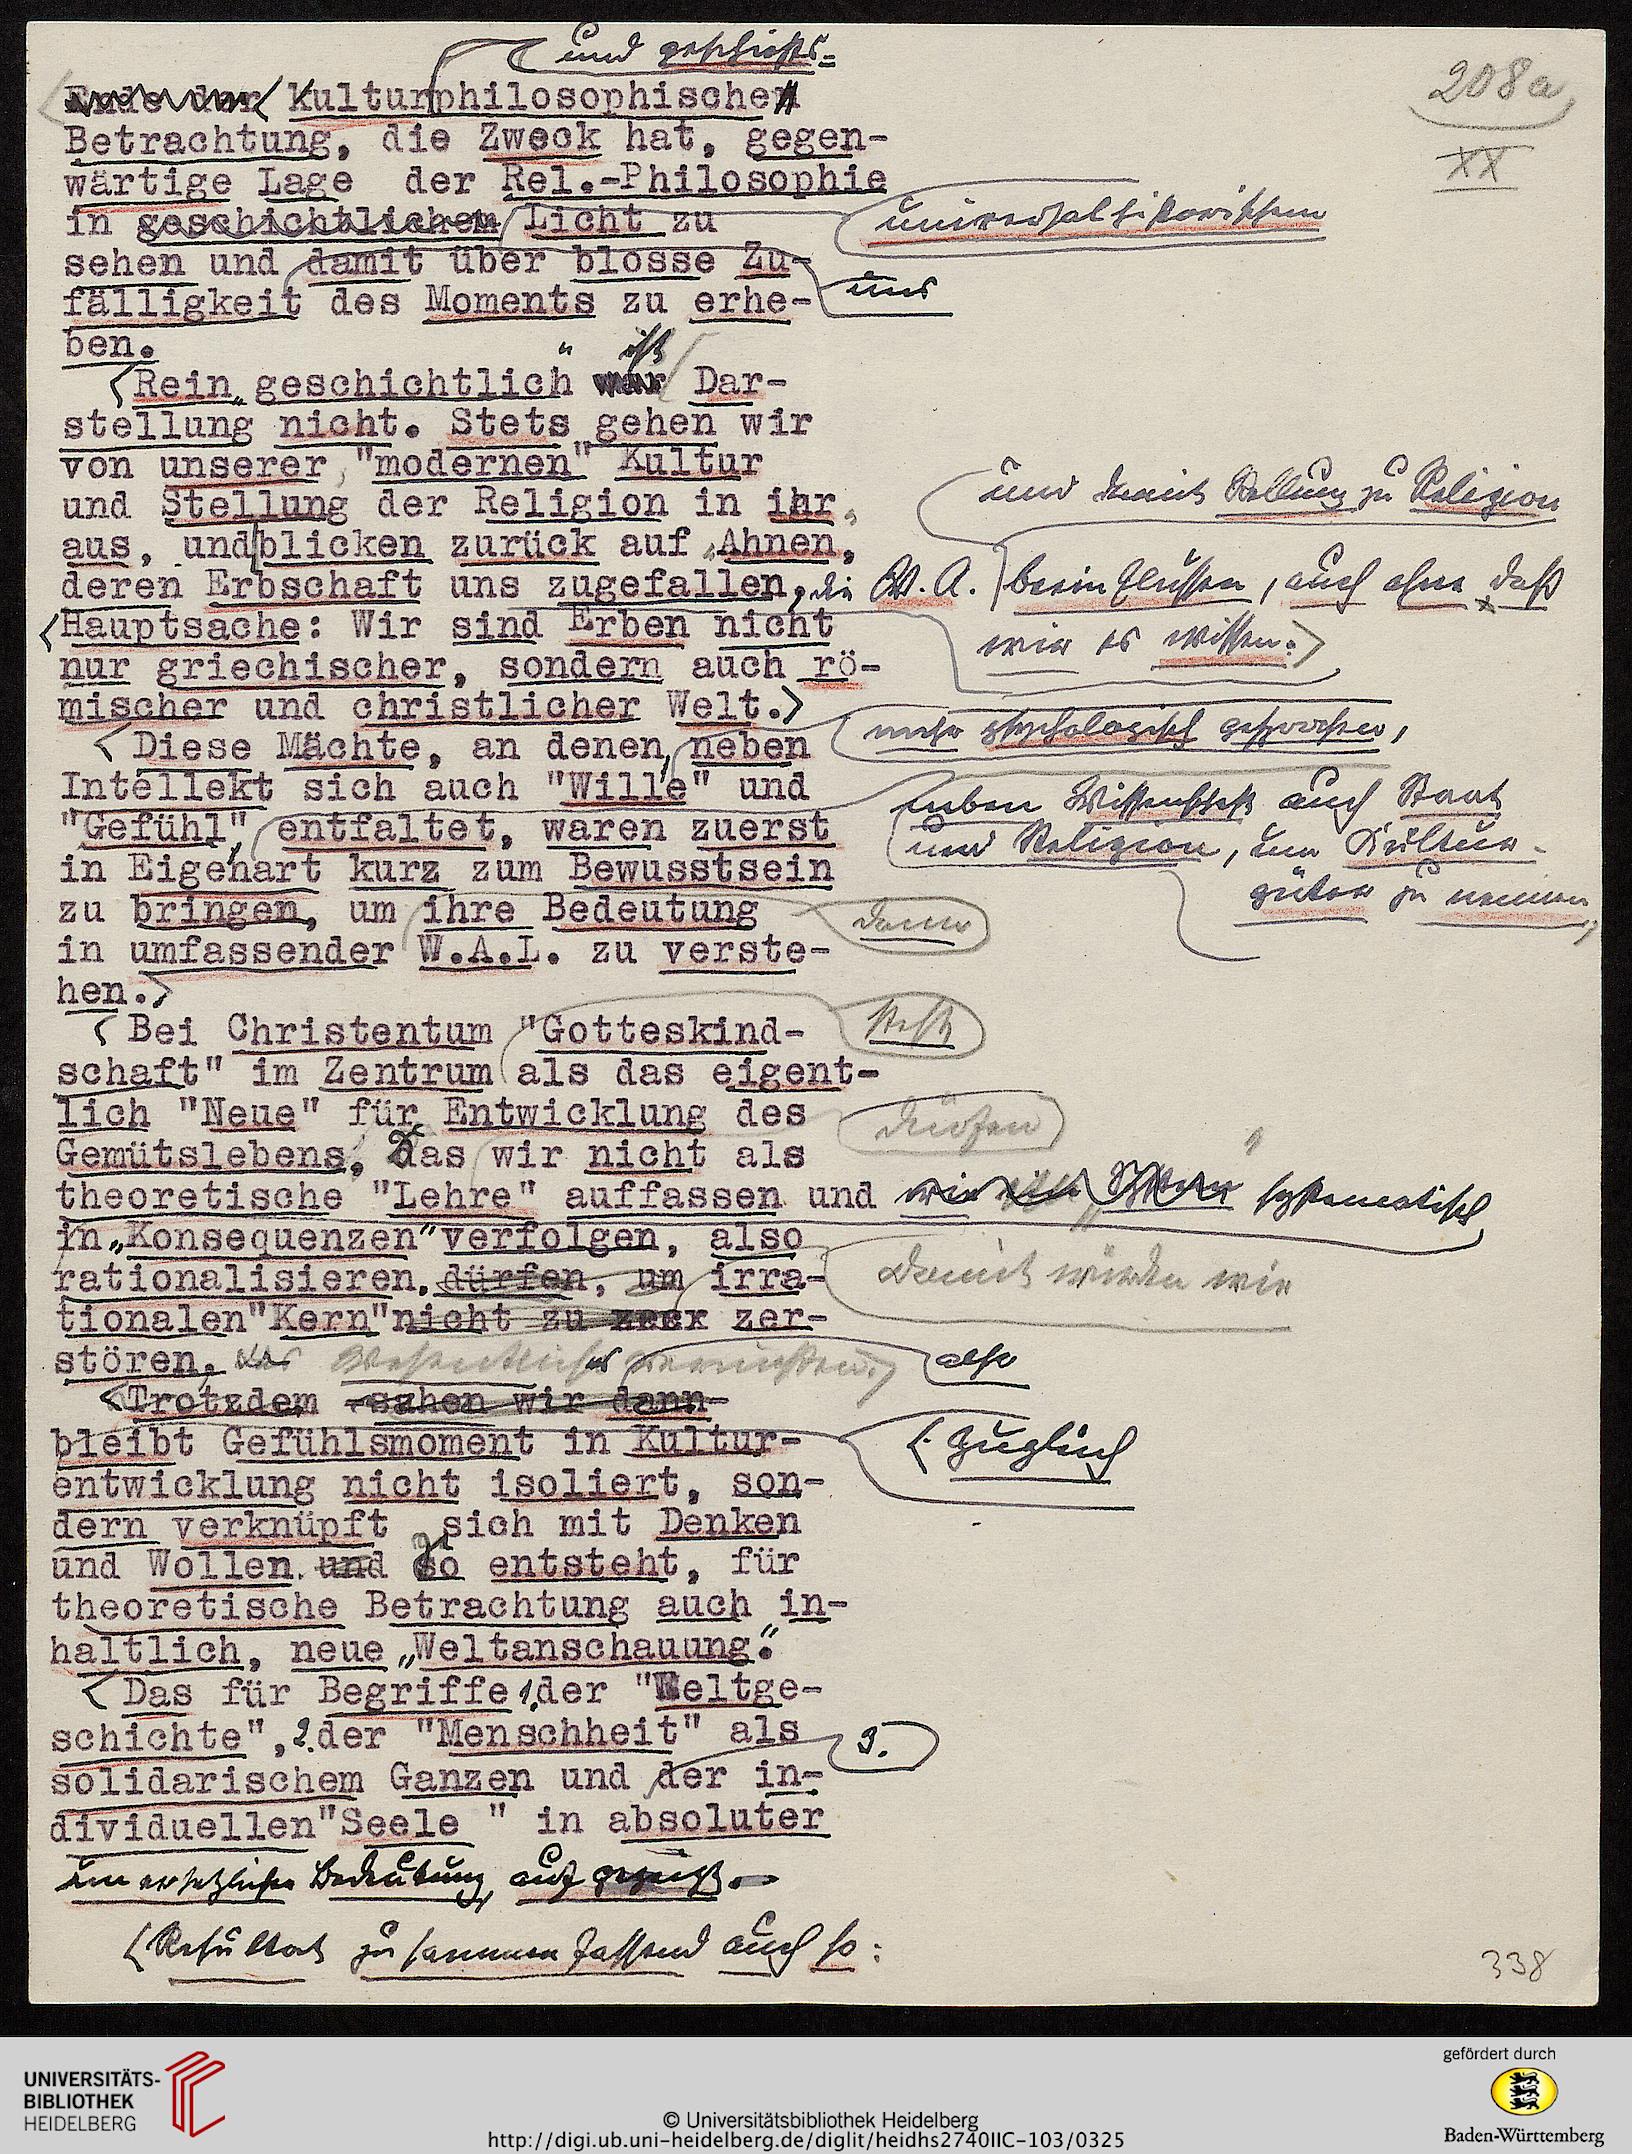 und geschichts=
208a
XX
Ende der Kulturphilosophischen
Betrachtung, die Zweck hat, gegen-
wärtige Lage der Rel.-Philosophie
in geschichtlichem Licht zu
universalhistorischem
sehen und damit über blosse Zu-
uns
fälligkeit des Moments zu erhe-
ben.
ist
Rein "geschichtlich" war Dar-
stellung nicht. Stets gehen wir
von unserer, "modernen" Kultur
und Stellung der Religion in ihr,
und damit Stellung zu Religion
aus, und blicken zurück auf "Ahnen,
deren Erbschaft uns zugefallen, die W. A. beeinflussen, auch ohne daß
wir es wissen.
Hauptsache: Wir sind Erben nicht
nur griechischer, sondern auch rö-
mischer und christlicher Welt.
mehr psychologisch gesprochen,
Diese Mächte, an denen, neben
Intellekt sich auch "Wille" und
neben Wissenschaft auch Staat
und Religion, um Kultur-
güter zu nennen,
"Gefühl", entfaltet, waren zuerst
in Eigenart kurz zum Bewusstsein
zu bringen, um ihre Bedeutung
dann
in umfassender W.A.L. zu verste-
hen.
Bei Christentum "Gotteskind-
steht
schaft" im Zentrum als das eigent-
lich "Neue" für Entwicklung des
dürfen
Gemütslebens, Das wir nicht als
theoretische "Lehre" auffassen und wie ein systematisch
in "Konsequenzen" verfolgen, also
rationalisieren. dürfen, um irra-
Damit würden wir
tionalen "Kern" nicht zu zerx zer-
stören, das Wesentliche vernichten.
also
Trotzdem -sahen wir dann-
bleibt Gefühlsmoment in Kultur-
Zugleich
entwicklung nicht isoliert, son-
dern verknüpft sich mit Denken
und Wollen. und So entsteht, für
theoretische Betrachtung auch in-
haltlich, neue "Weltanschauung".
Das für Begriffe 1. der "Weltge-
schichte", 2. der "Menschheit" als
3.
solidarischem Ganzen und der in-
dividuellen "Seele " in absoluter
unersetzlicher Bedeutung aufgezeigt.
Resultat zusammenfassend auch so:
338
UNIVERSITÄTS-
BIBLIOTHEK
HEIDELBERG
© Universitätsbibliothek Heidelberg
http://digi.ub.uni-heidelberg.de/diglit/heidhs2740IIC-103/0325
gefördert durch
Baden-Württemberg